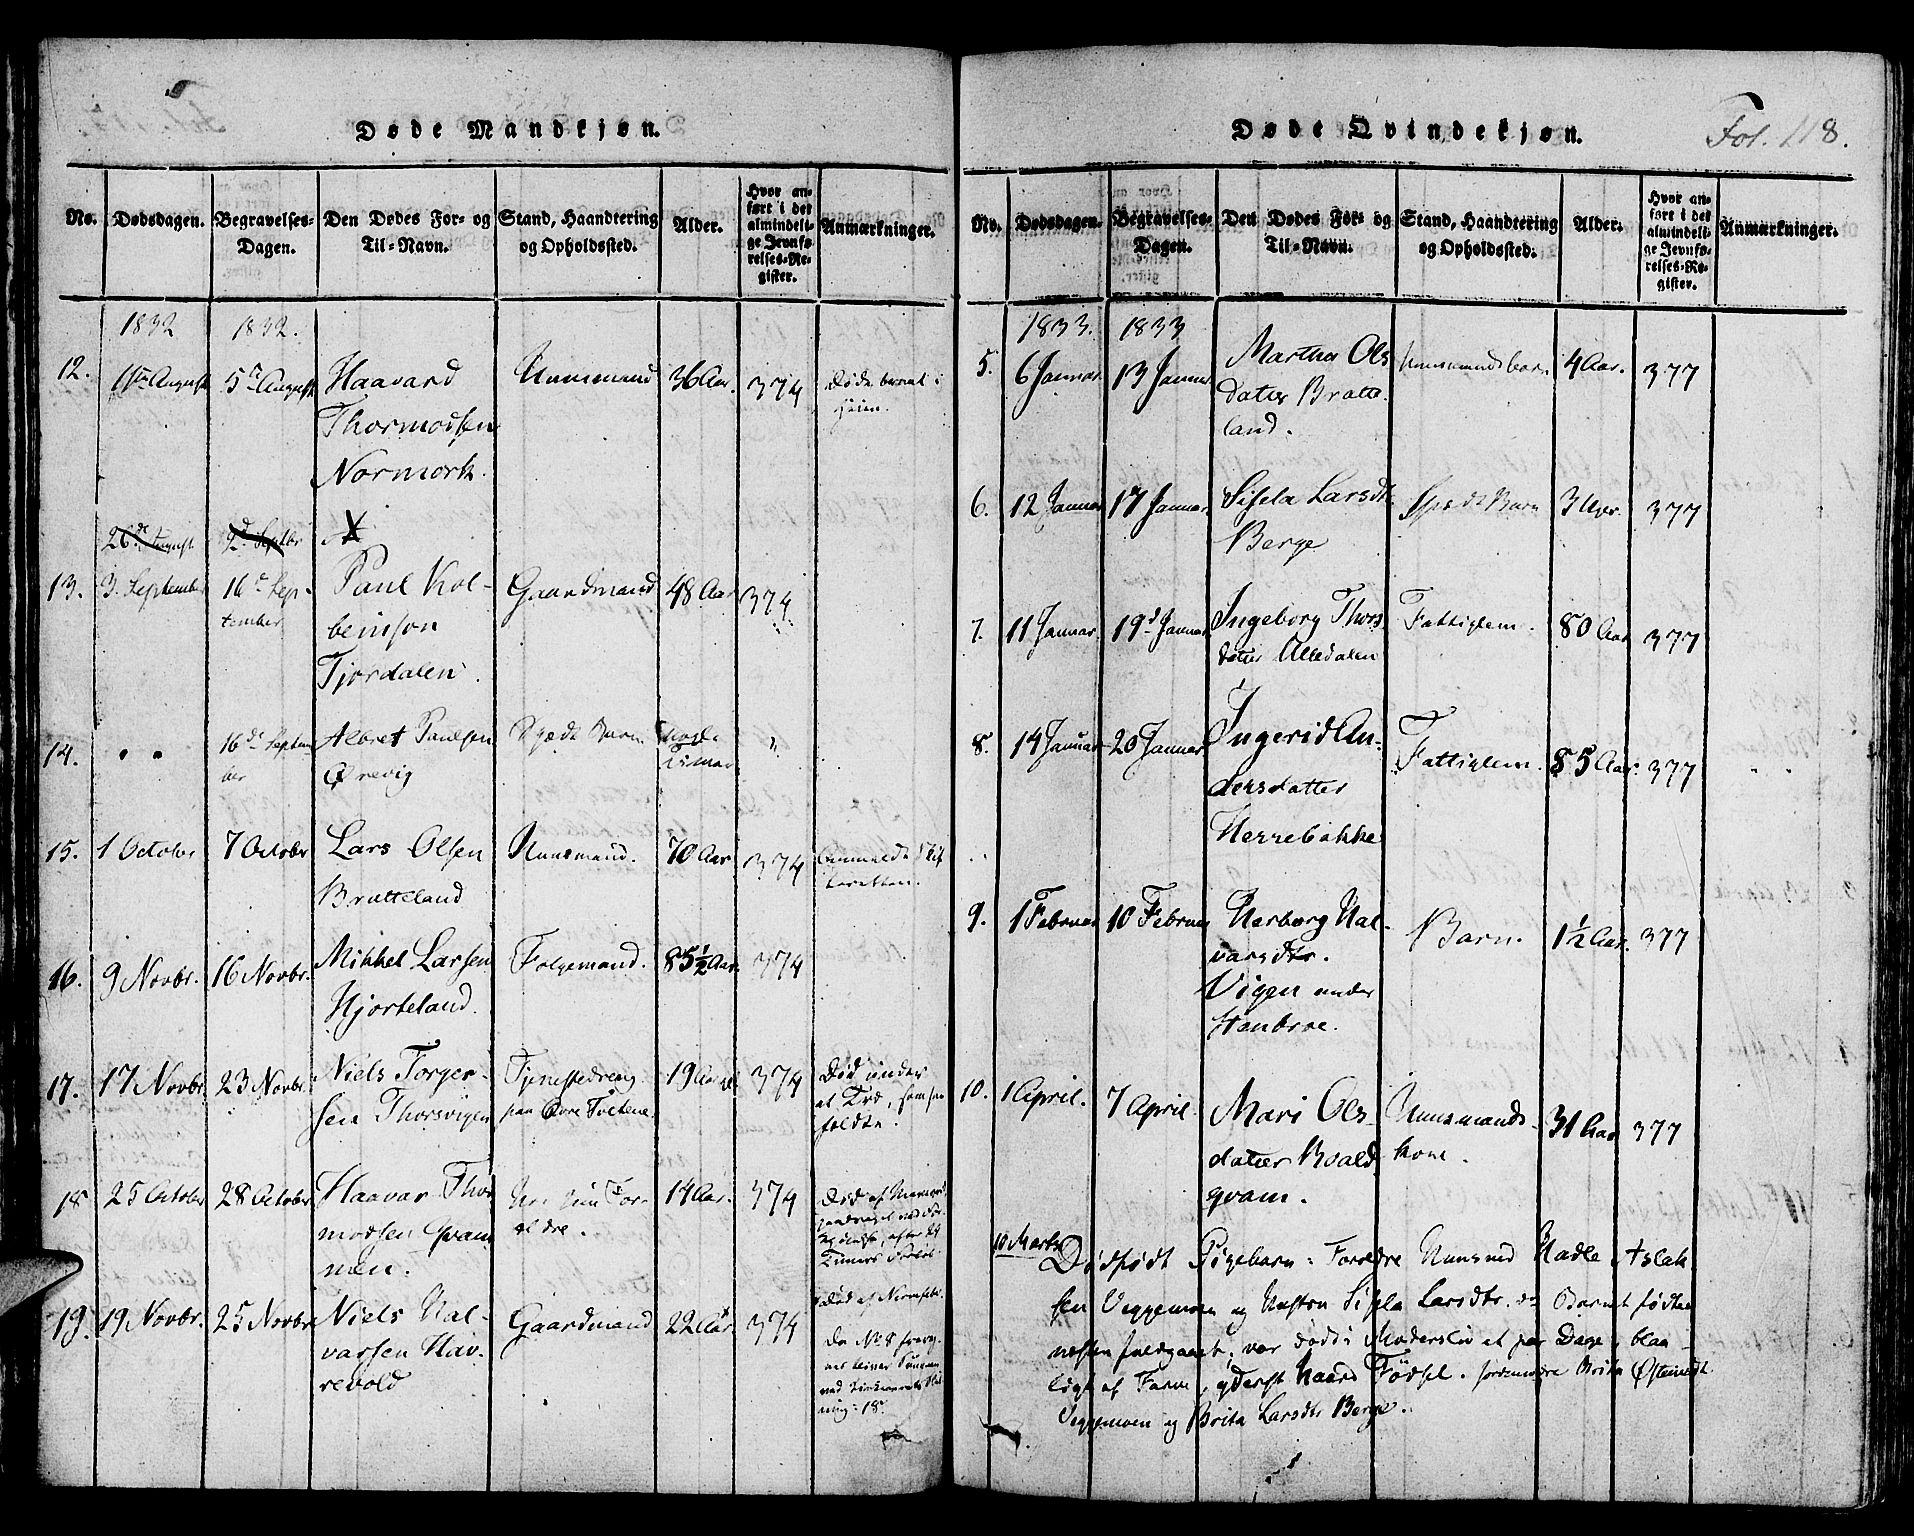 Døde Mandkjøn.
No.
Dødsdagen.
Begravelses-
Dagen.
Den Dødes For- og
Til-Navn.
Stand, Haandtering
og Opholdssted.
Alder.
Hvor an-
ført i det
almindeli-
ge Jevnfø-
relses-Re-
gister.
Anmærkninger.
1832
1832.
12.
August
5 August
Haavard
Thormodsen
Normork.
Huusmand
36 Aar.
374
26de August
2d Septbr
13.
3. September
16 Sep-
tember
Paul Kol-
benison
Tjordalen.
Gaardmand
48 Aar
374
14.
16de Septem
ber
Albret Paulsen
Ørevig
Spædt Barn
nogle
Timer
"
15.
1 Octobr
7 Octobr
Lars Olsen
Bratteland
Huusmand.
70 Aar
374
Anmeldt Skif
teretten.
16.
9 Novbr.
16 Novbr.
Mikkel Larsen
Hjorteland.
Folgemand.
85½ Aar.
374
17.
17 Novbr.
23 Novbr.
Niels Torger-
sen Thorsvigen
Tjenestedreng
paa Øvre Tvetene.
19 Aar
374
Død under
et Træ, som
foldte.
18
25 Octobr
28 Octobr
Haavar Thor
modsen Qvam
men.
Hos sine For-
ældre.
14 Aar.
374
Død af
19.
19 Novbr.
25 Novbr
Niels Hal-
varsen Hav-
revold
Gaardmand
22 Aar.
374
Død af Nervefeber.
Døde Qvindekjøn.
Fol. 118.
No.
Dødsdagen.
Begravelses-
Dagen.
Den Dødes For- og
Til-Navn.
Stand, Haandtering
og Opholdssted.
Alder.
Hvor an-
ført i det
almindeli-
ge Jevnfø-
relses-Re-
gister.
Anmærkninger.
1833.
1833
5.
6 Januar
13 Januar
Martha Ols
datter Bratte-
land.
Huusmandsbarn
4 Aar.
377
6.
12 Januar
17 Januar
Sisela Larsdtr
Berge
Spædt Barn
3 Uger.
377
7.
11 Januar.
19d Januar
Ingeborg Thors
datter Alledalen
Fattiglem.
80 Aar
377
8.
14 Januar
20 Januar
Ingerid An-
dersdatter
Herrebakke
Fattiglem.
85 Aar.
377
9.
1 Februar
10 Februar
Herborg Hal-
varsdtr.
Vigen under
Stenbroe.
Barn.
1½ Aar.
377
10.
1 April.
7 April.
Mari Ols-
datter Roald
qvam.
Huusmands-
kone.
31 Aar
377
10 Marts
Dødfødt Pigebarn. Forældre Huusmd Hadle Aslak
sen Veggemoen og Hustru Sisela Larsdtr. Barnet fødtes
næsten fuldgaaet, var død i Modersliv et par Dage, blaa-
ligt af Farve, yderst haard Fødsel. Brita Østensdt
Veggemoen og Brita Larsdtr Berge.